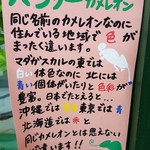 パンサーカメレオン
同じ名前のカメレオンなのに
住んでいる地域で色が
まったく違います。
マダガスカルの東では
白い体色なのに北には
青い個体がいたりと色彩が
豊富。日本でたとえると…
沖縄では 東京では青
北海道では と
同じカメレオンとは思えない
違います!!